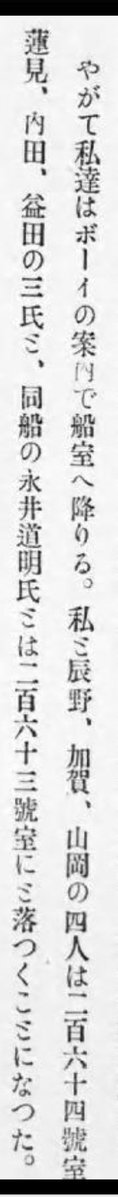 やがて私達はボーイの案内で船室へ降りる。私ミ辰野、加賀、山岡の四人は二百六十四號室
蓮見、内田、益田の三氏ミ、同船の永井道明氏ミは二百六十三號室にミ落つくこミになつた。